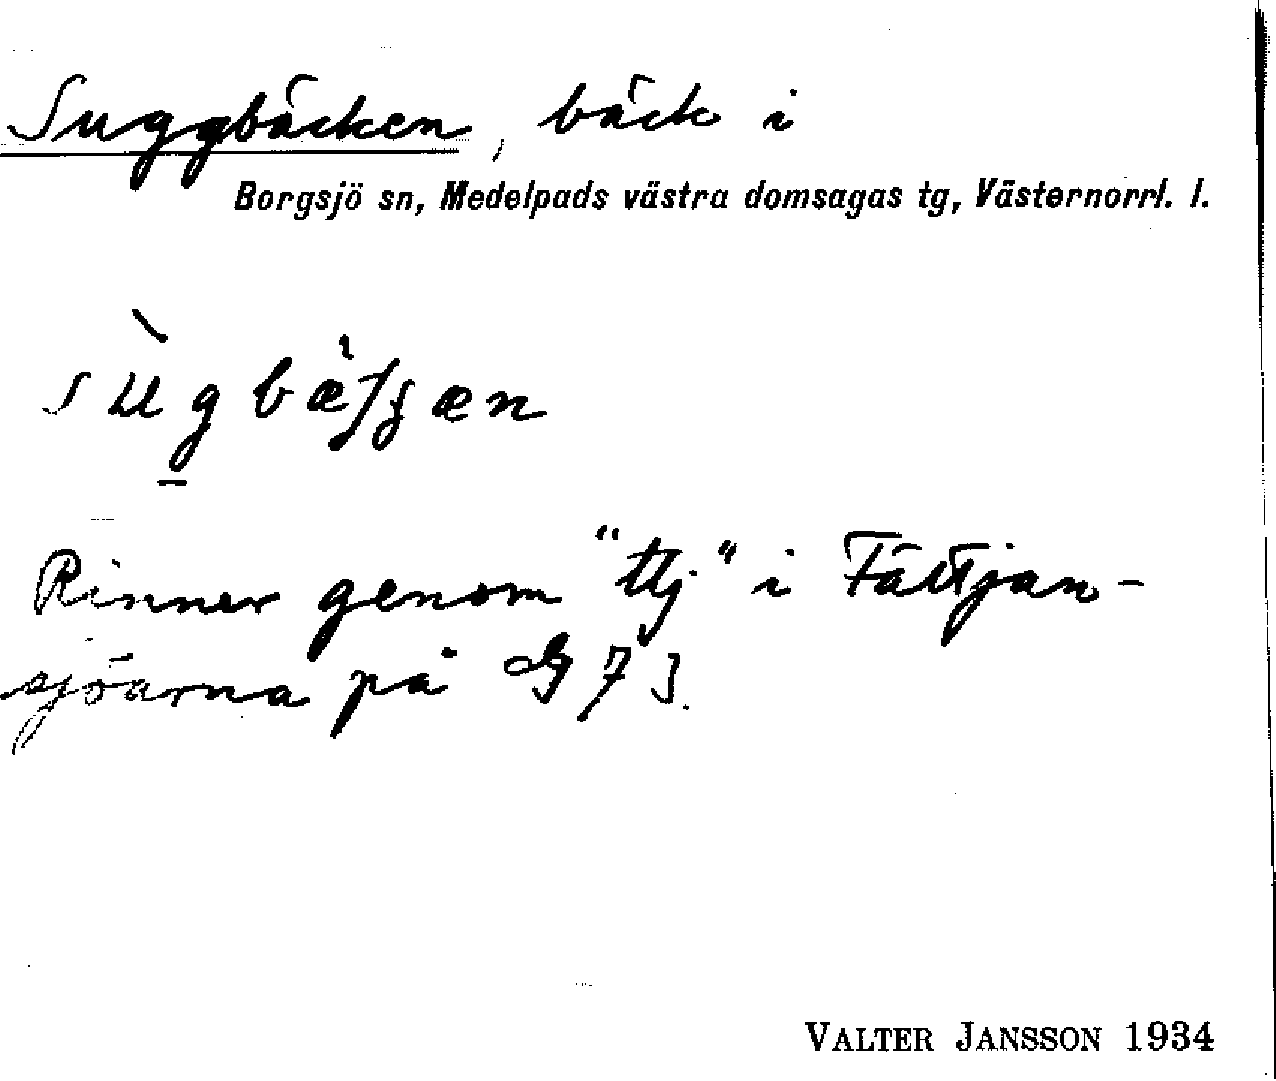 Suggbäcken, bäck i
Borgsjö sn, Medelpads västra domsagas tg, Västernorrl. l.
Rinner genom "ttj" i Fättjan-
sjöarna på G 7 J.
VALTER JANSSON 1934